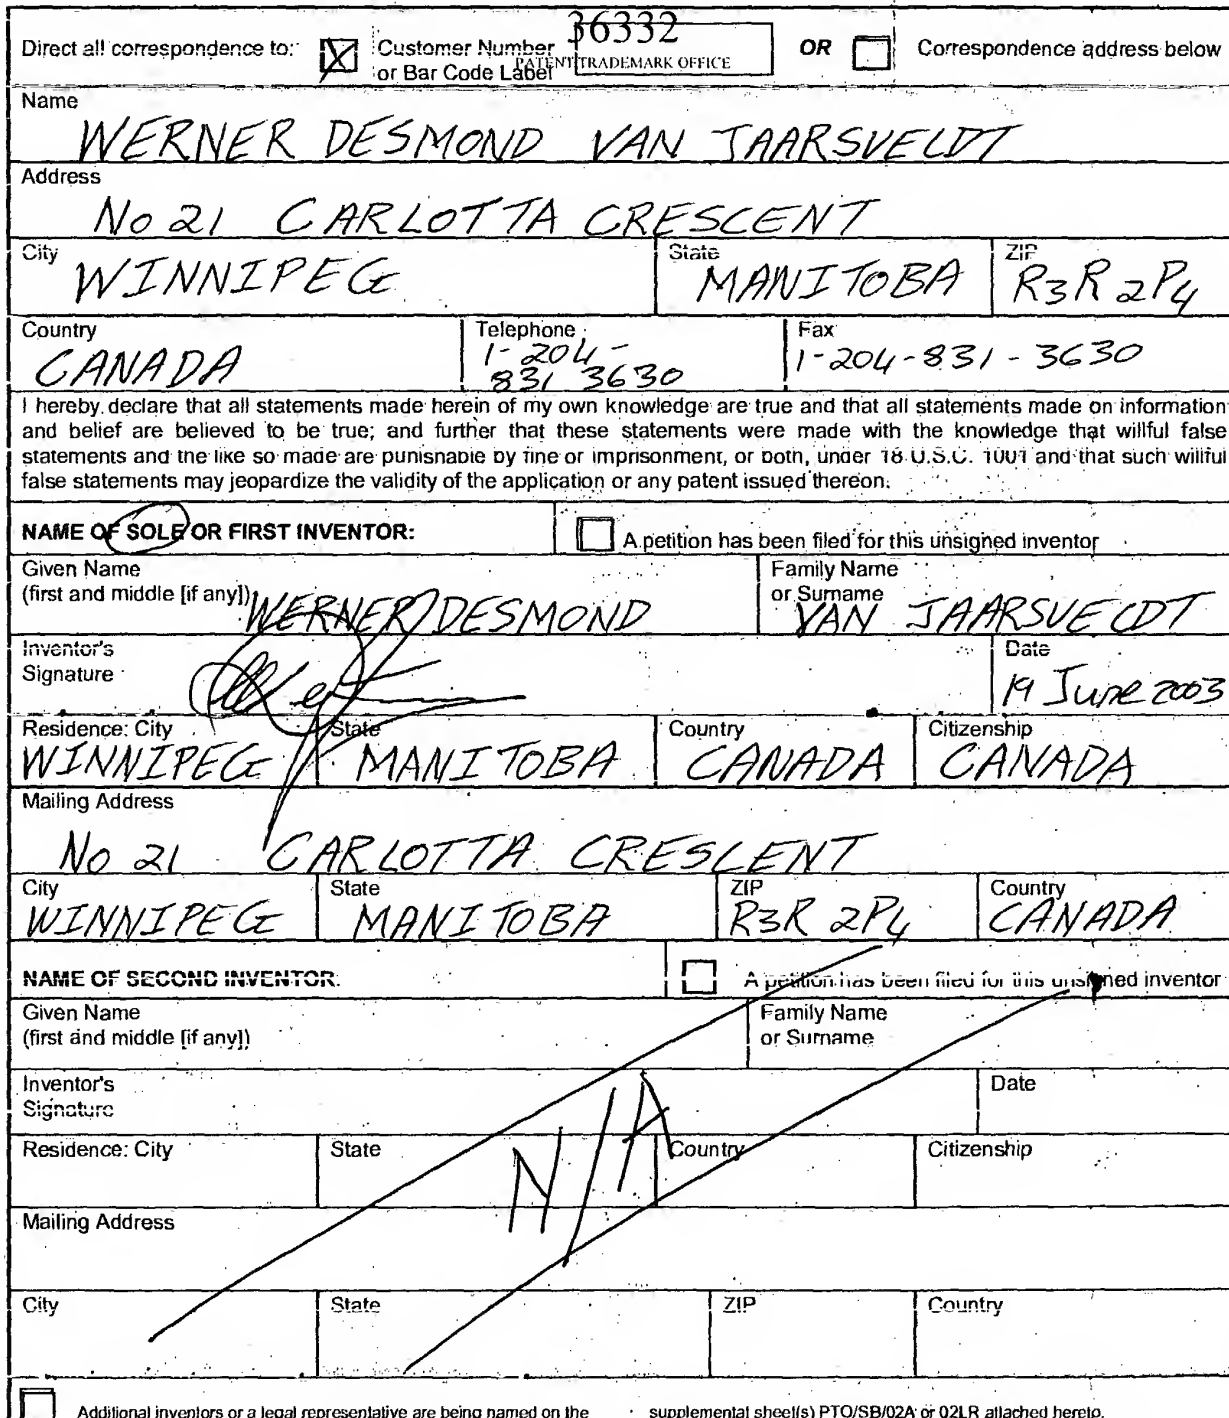 36332
Direct all correspondence to: Customer Number OR Correspondence address below
or Bar Code Label PATENT TRADEMARK OFFICE
Name
WERNER DESMOND VAN JAARSVELDT
Address
No 21 CARLOTTA CRESCENT
City State ZIP
WINNIPEG MANITOBA R3R 2P4
Country Telephone Fax
CANADA 1-204- 1-204-831-3630
831 3630
I hereby declare that all statements made herein of my own knowledge are true and that all statements made on information
and belief are believed to be true; and further that these statements were made with the knowledge that willful false
statements and the like so made are punishable by fine or imprisonment, or both, under 18 U.S.C. 1001 and that such willful
false statements may jeopardize the validity of the application or any patent issued thereon.
NAME OF SOLE OR FIRST INVENTOR: A petition has been filed for this unsigned inventor
Given Name Family Name
(first and middle [if any]) or Surname
WERNER DESMOND VAN JAARSVELDT
Inventor's Date
Signature 19 June 2003
Residence: City State Country Citizenship
WINNIPEG MANITOBA CANADA CANADA
Mailing Address
No 21 CARLOTTA CRESCENT
City State ZIP Country
WINNIPEG MANITOBA R3R 2P4 CANADA
NAME OF SECOND INVENTOR: A petition has been filed for this unsigned inventor
Given Name Family Name
(first and middle [if any]) or Surname
Inventor's Date
Signature
N/A
Residence: City State Country Citizenship
Mailing Address
City State ZIP Country
Additional inventors or a legal representative are being named on the supplemental sheet(s) PTO/SB/02A or 02LR attached hereto.